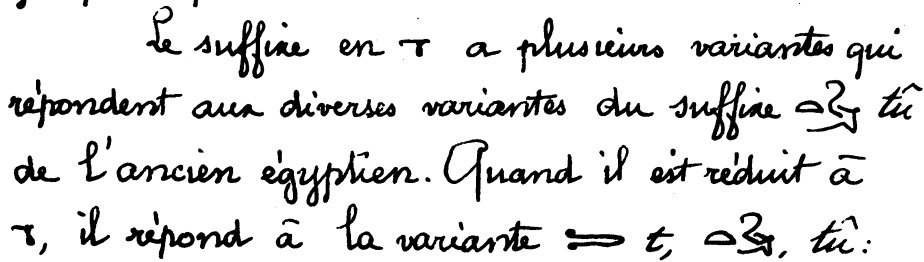 Le suffixe en ⲧ a plusieurs variantes qui
répondent aux diverses variantes du suffixe 𓏏𓅱 tû
de l'ancien égyptien. Quand il est réduit à
ⲧ, il répond à la variante 𓍿 t, 𓏏𓅱, tû: